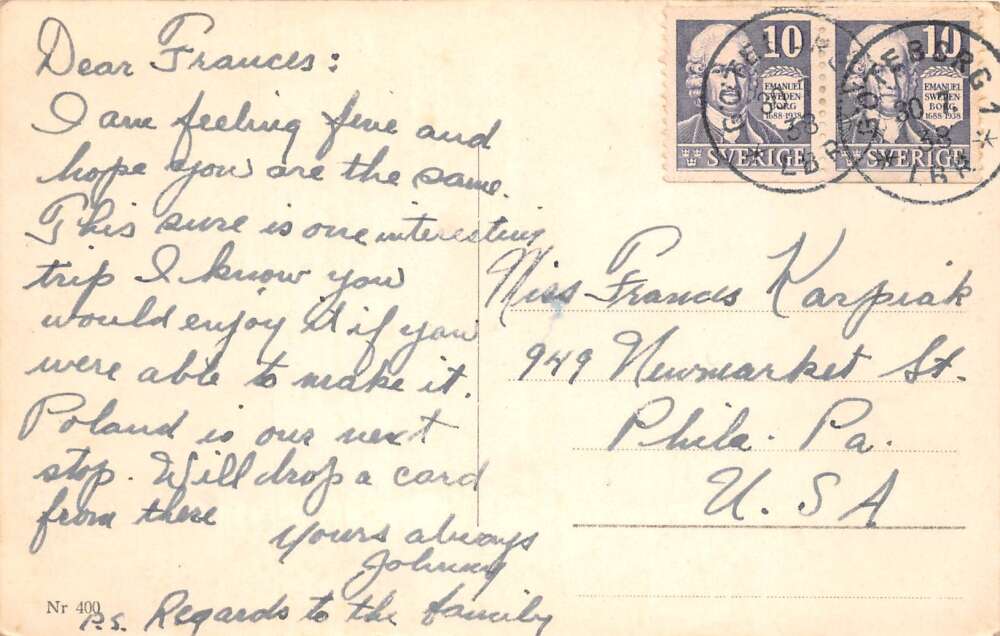 Dear Frances:
I am feeling fine and
hope you are the same.
This sure is one interesting
trip I know you
would enjoy it if you
were able to make it.
Poland is our next
stop. Will drop a card
from there
Yours always
Johnny
P.S. Regards to the family
Nr 400
10
EMANUEL
SWEDEN-
BORG
1688-1938
SVERIGE
10
EMANUEL
SWEDEN-
BORG
1688-1938
SVERIGE
GÖTEBORG 1
30
38
LBR
Miss Frances Karpiak
949 Newmarket St.
Phila. Pa.
U.S.A